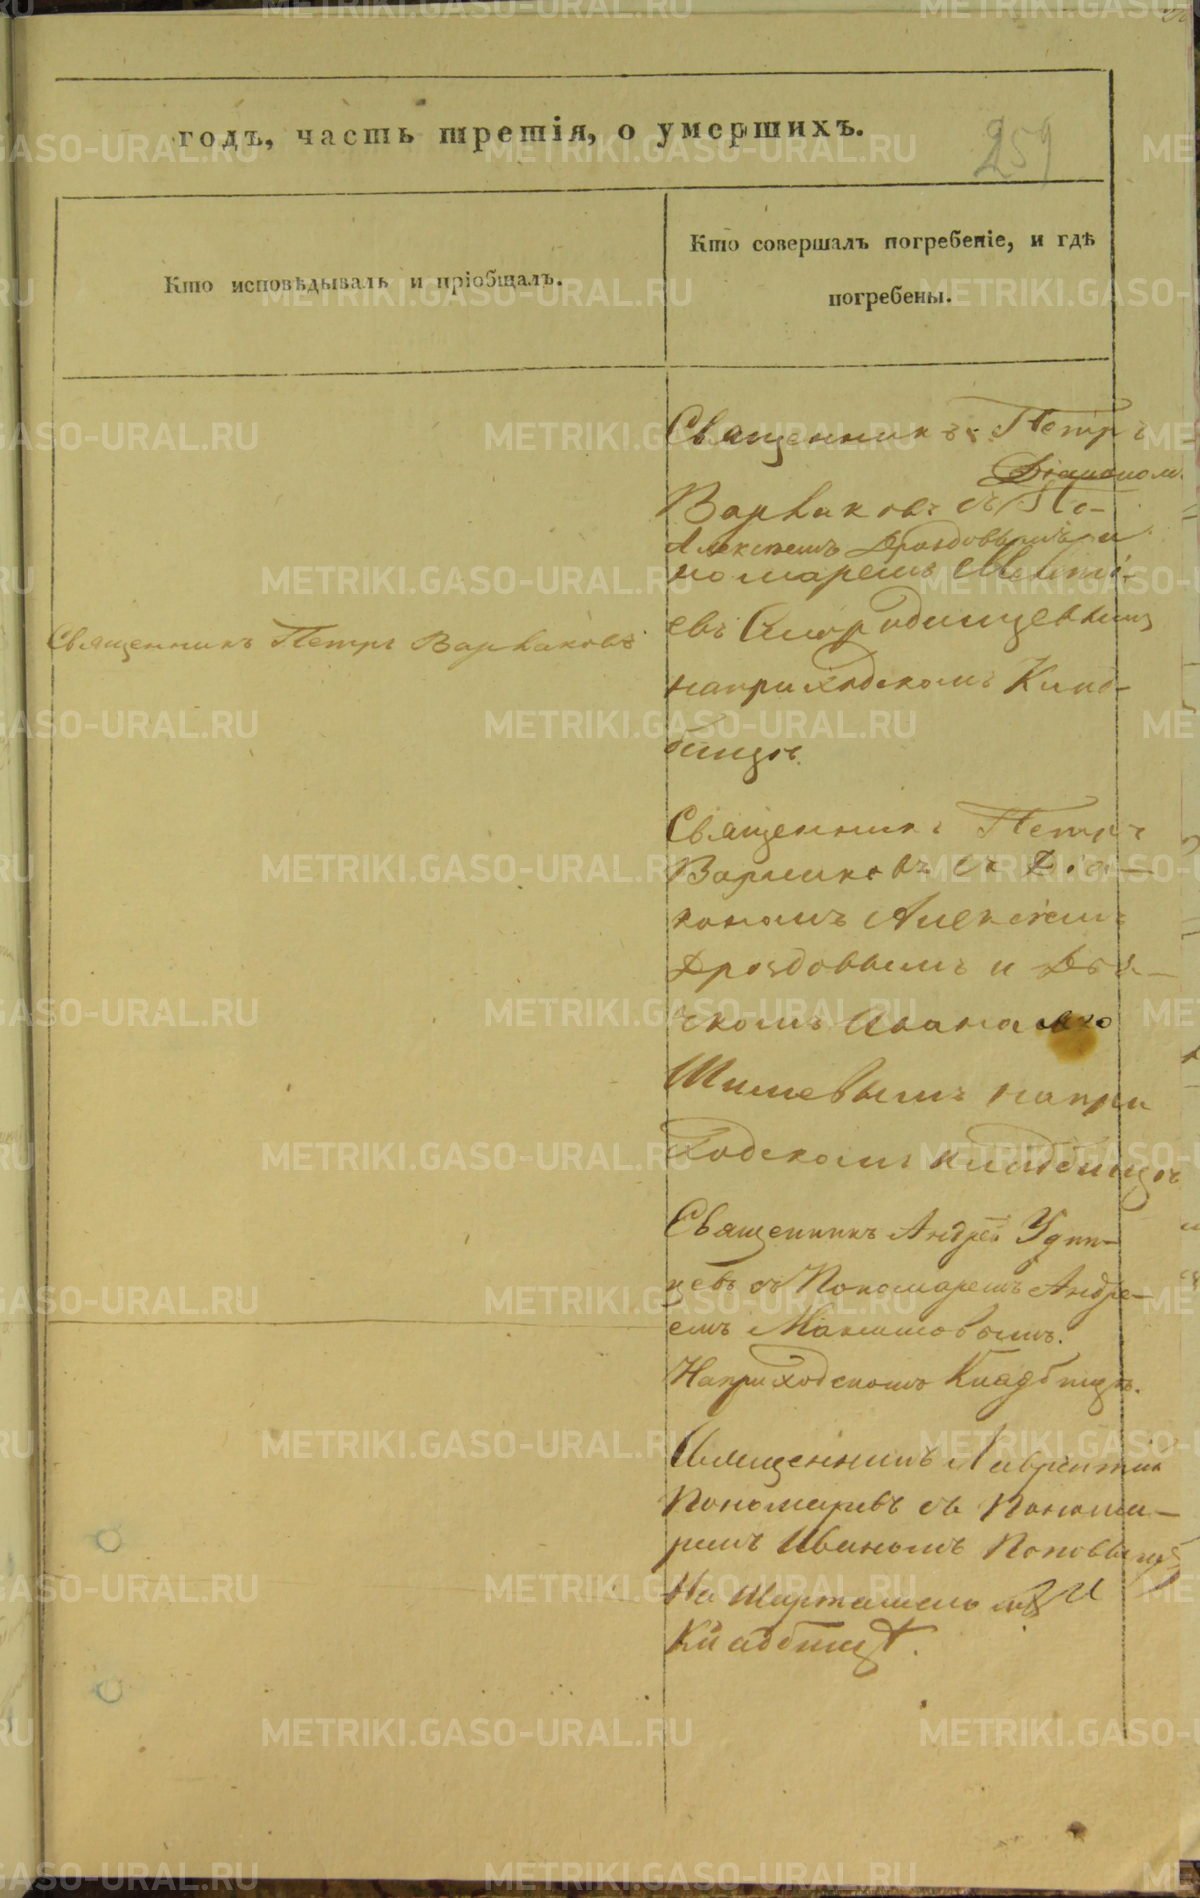 годъ, часть третія, о умершихъ.
259
Кто исповѣдывалъ и пріобщалъ.
Кто совершалъ погребеніе, и гдѣ
погребены.
Священникъ Петръ
Діакономъ
Варваковъ съ По-
Алексѣемъ Дроздовымъ и
номаремъ
евъ
Священникъ Петръ Варваковъ
наприходскомъ Клад-
бищѣ.
Священникъ Петръ
Варваковъ съ Діа-
кономъ Алексѣемъ
Дроздовымъ и Дья-
чкомъ
Шишевымъ напри
ходскомъ кладбищѣ
Священникъ Андрей Удин-
цевъ съ Пономаремъ Андре-
емъ Максимовымъ.
Наприходскомъ Кладбищѣ.
Священникъ Лаврентій
Пономаревъ съ Понома-
ремъ Иваномъ Поповымъ
На
Кладбищѣ.
METRIKI.GASO-URAL.RU